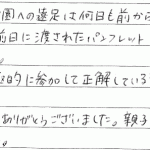 園への遠足は何日も前から
前日に渡されたパンフレット
極的に参加して正解している
ありがとうございました。親子
。